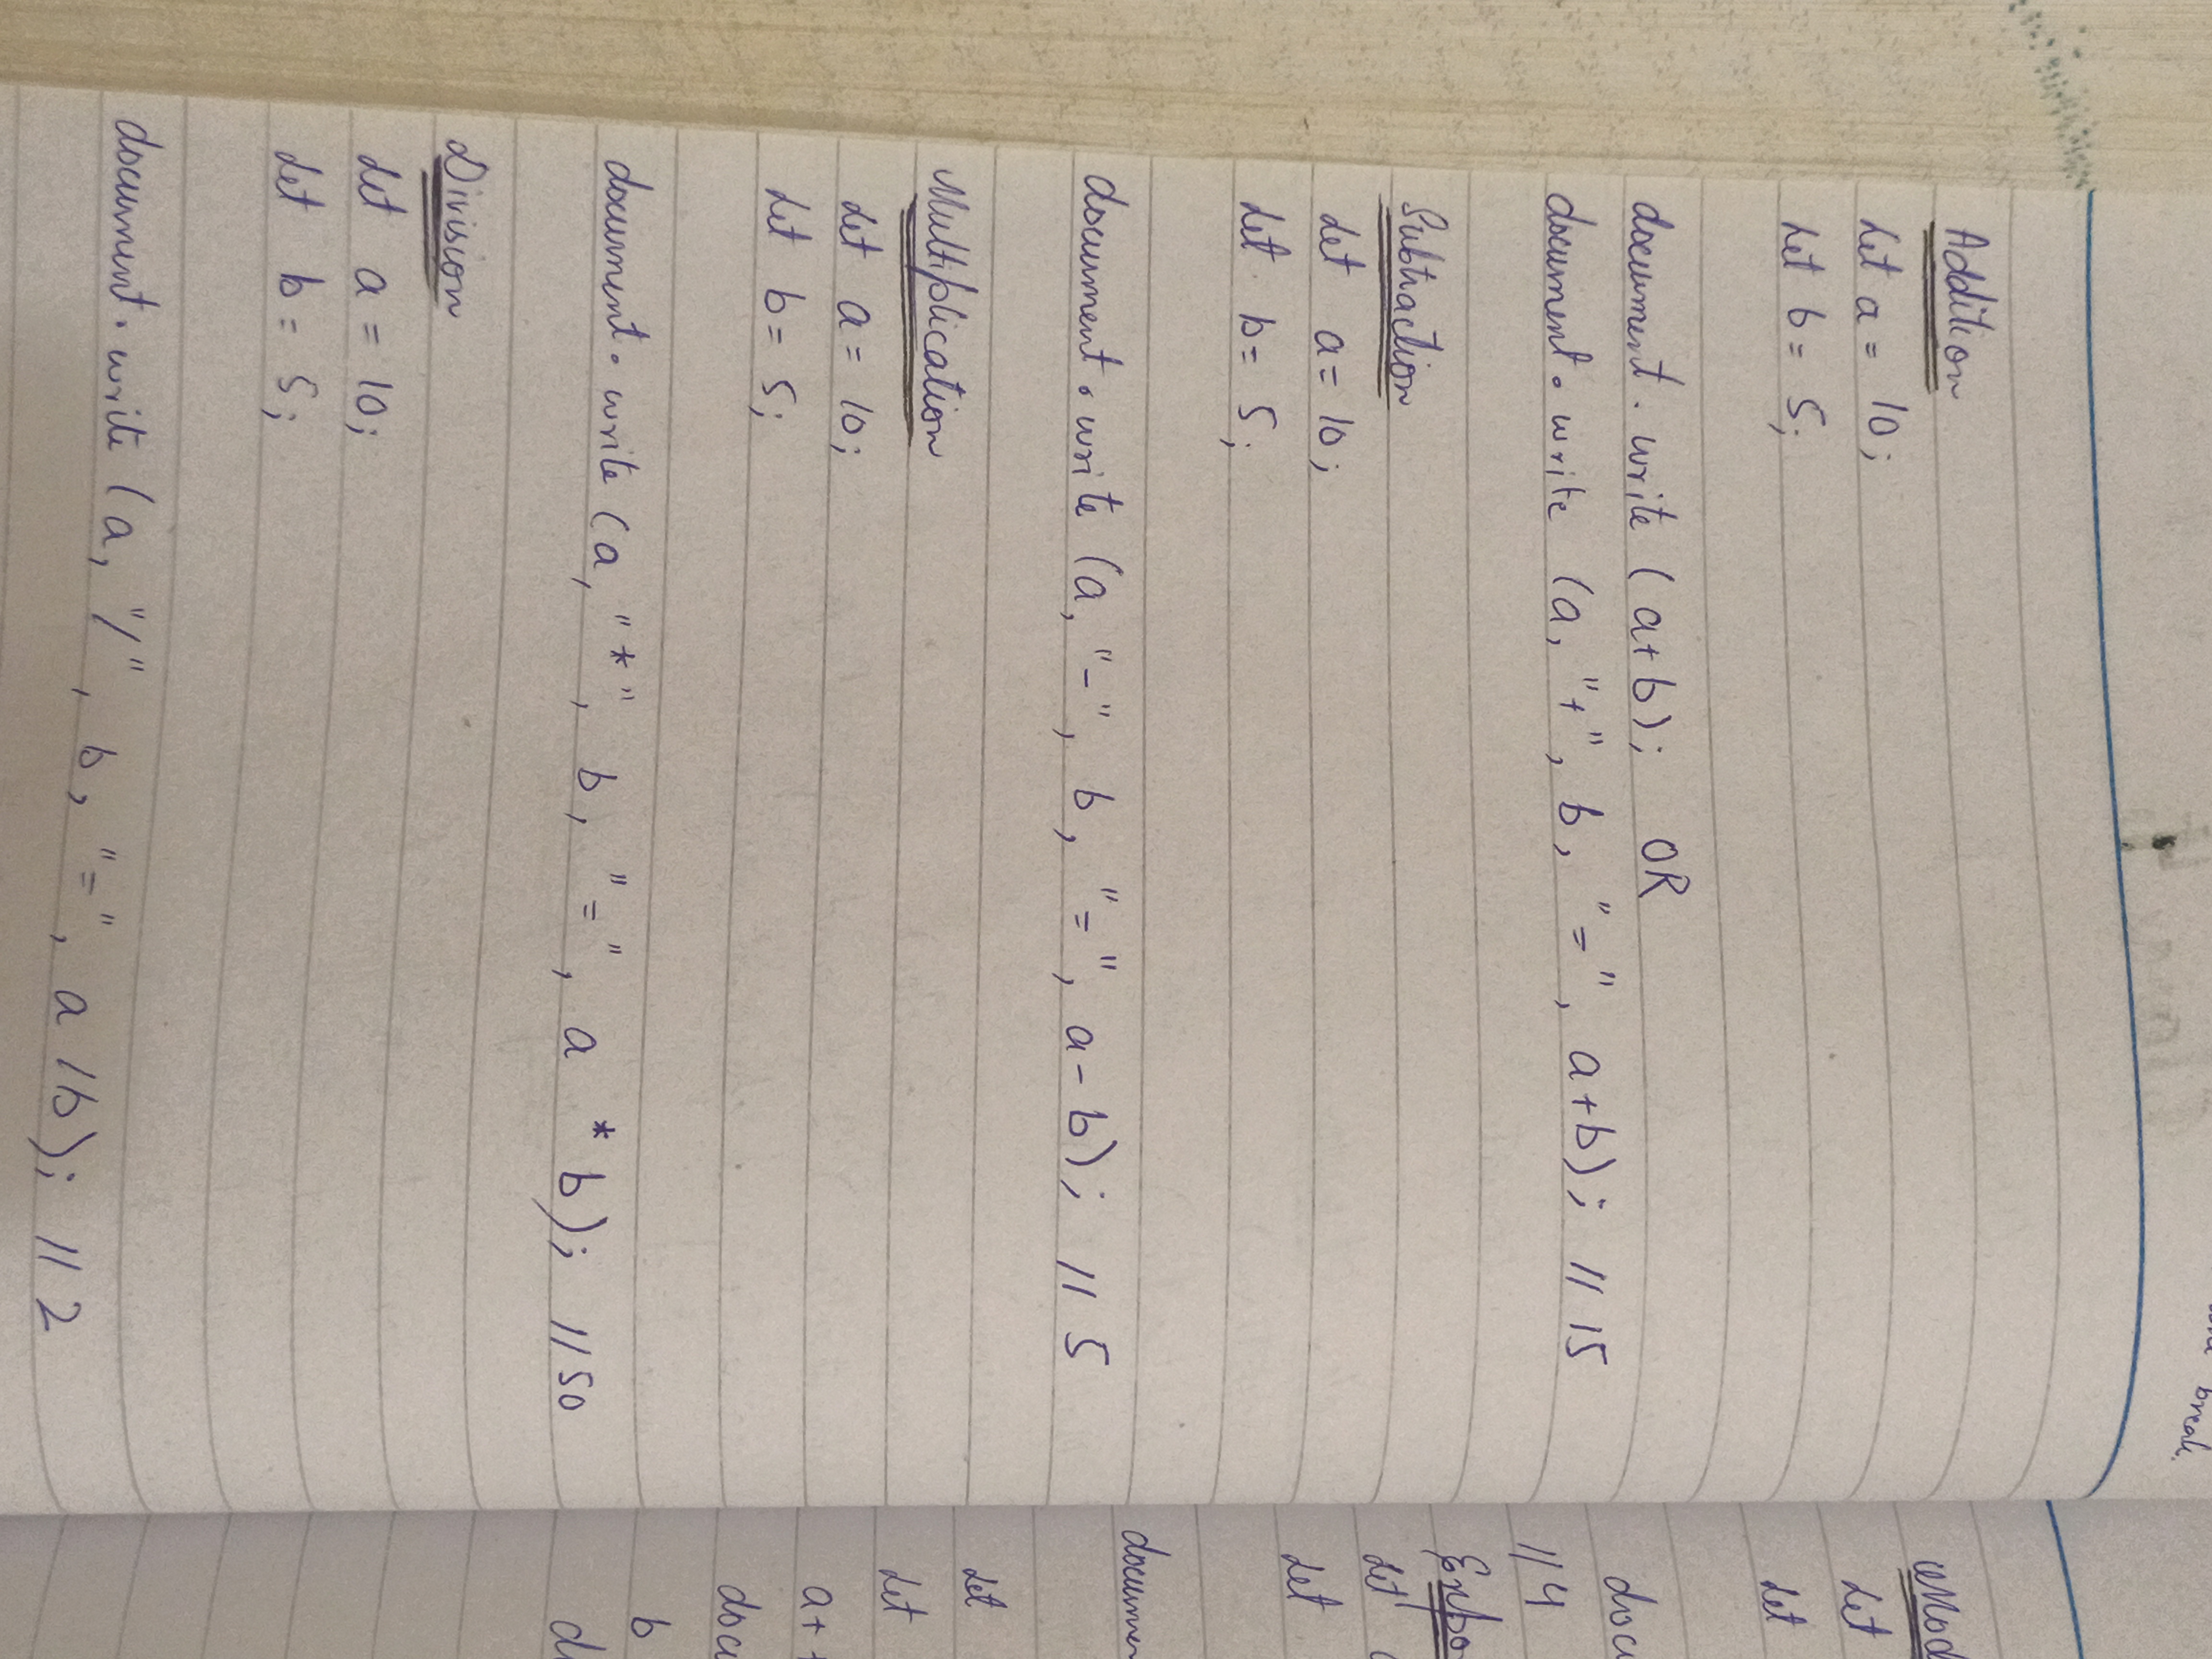 break.
Addition
Let a = 10;
Let b = 5;
document.write (a+b); OR
document.write (a, "+", b, "=", a+b); // 15
Subtraction
Let a = 10;
Let b = 5;
document.write (a, "-", b, "=", a-b); // 5
Multiplication
Let a = 10;
Let b = 5;
document.write (a, "*", b, "=", a * b); // 50
Division
Let a = 10;
Let b = 5;
document.write (a, "/", b, "=", a/b); // 2
Let
Let
// 4
Let
Let
Let
Let
b